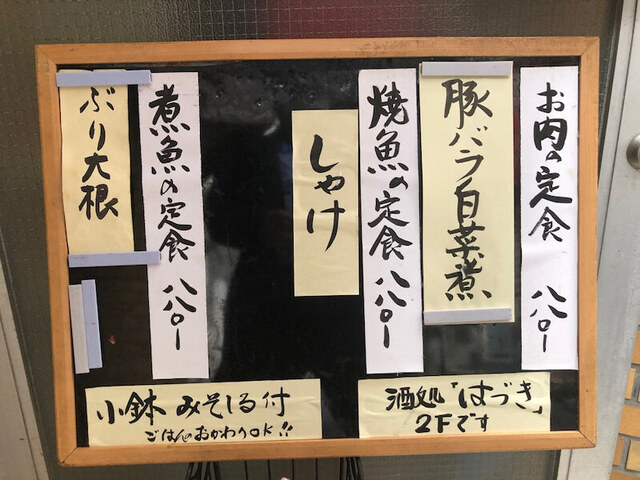 お肉の定食 八八〇ー
豚バラ白菜煮
焼魚の定食 八八〇ー
しゃけ
煮魚の定食 八八〇ー
ぶり大根
小鉢 みそしる付
ごはんおかわりOK!!
酒処「はづき」
2Fです